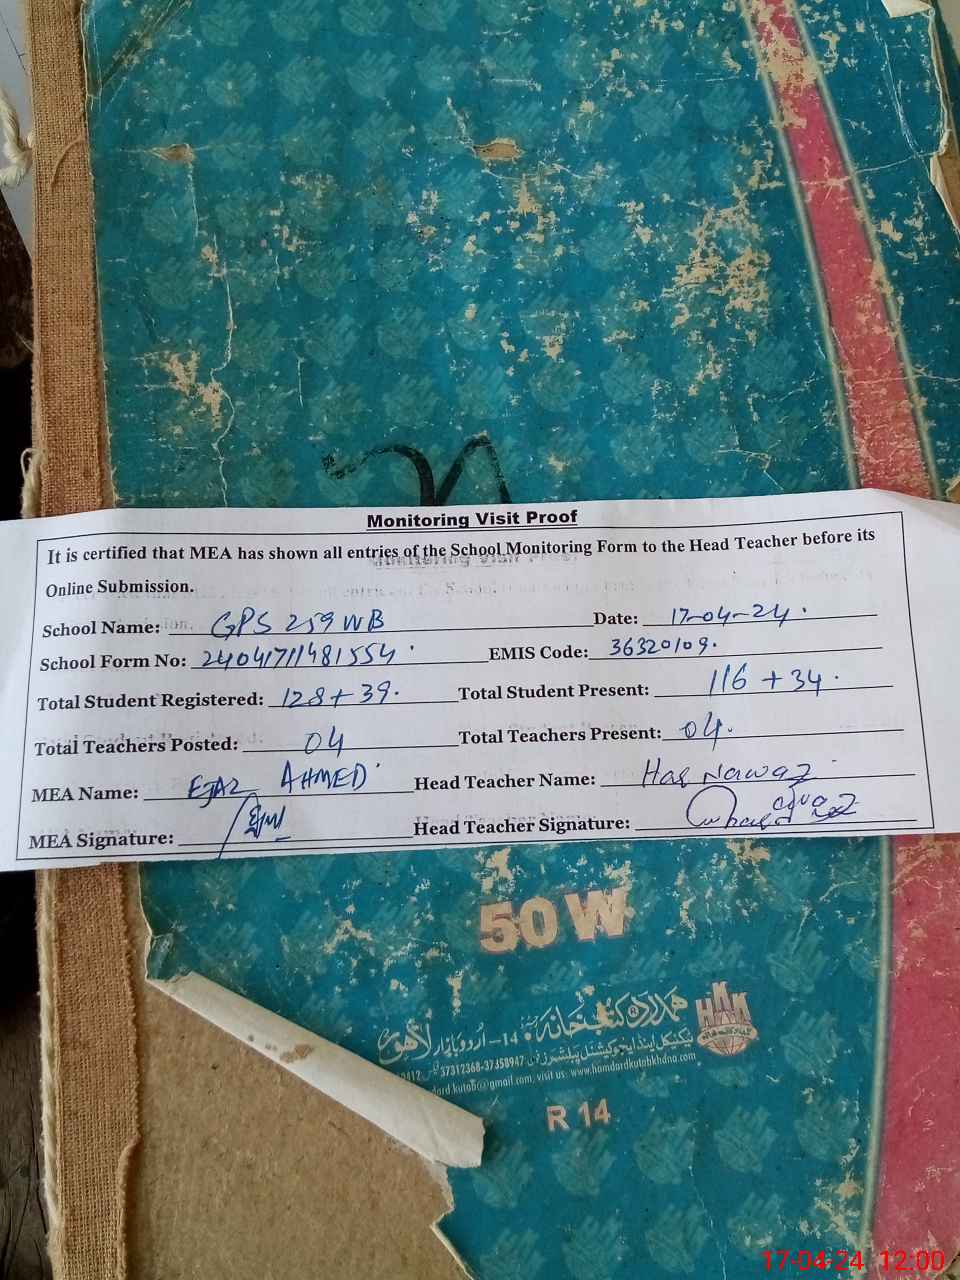 Monitoring Visit Proof
It is certified that MEA has shown all entries of the School Monitoring Form to the Head Teacher before its
Online Submission.
School Name: GPS 259 WB Date: 17-04-24.
School Form No: 24041711481554. EMIS Code: 36320109.
Total Student Registered: 128+39. Total Student Present: 116 + 34.
Total Teachers Posted: 04 Total Teachers Present: 04.
MEA Name: EJAZ AHMED Head Teacher Name: Haq Nawaz
MEA Signature: Head Teacher Signature:
50 W
HKK
ہمدرد کتب خانہ
14-اُردو بازار لاہور
37312368-37358947
kutab@gmail.com, visit us: www.hamdardkutabkhdna.com
R 14
17-04-24 12:00